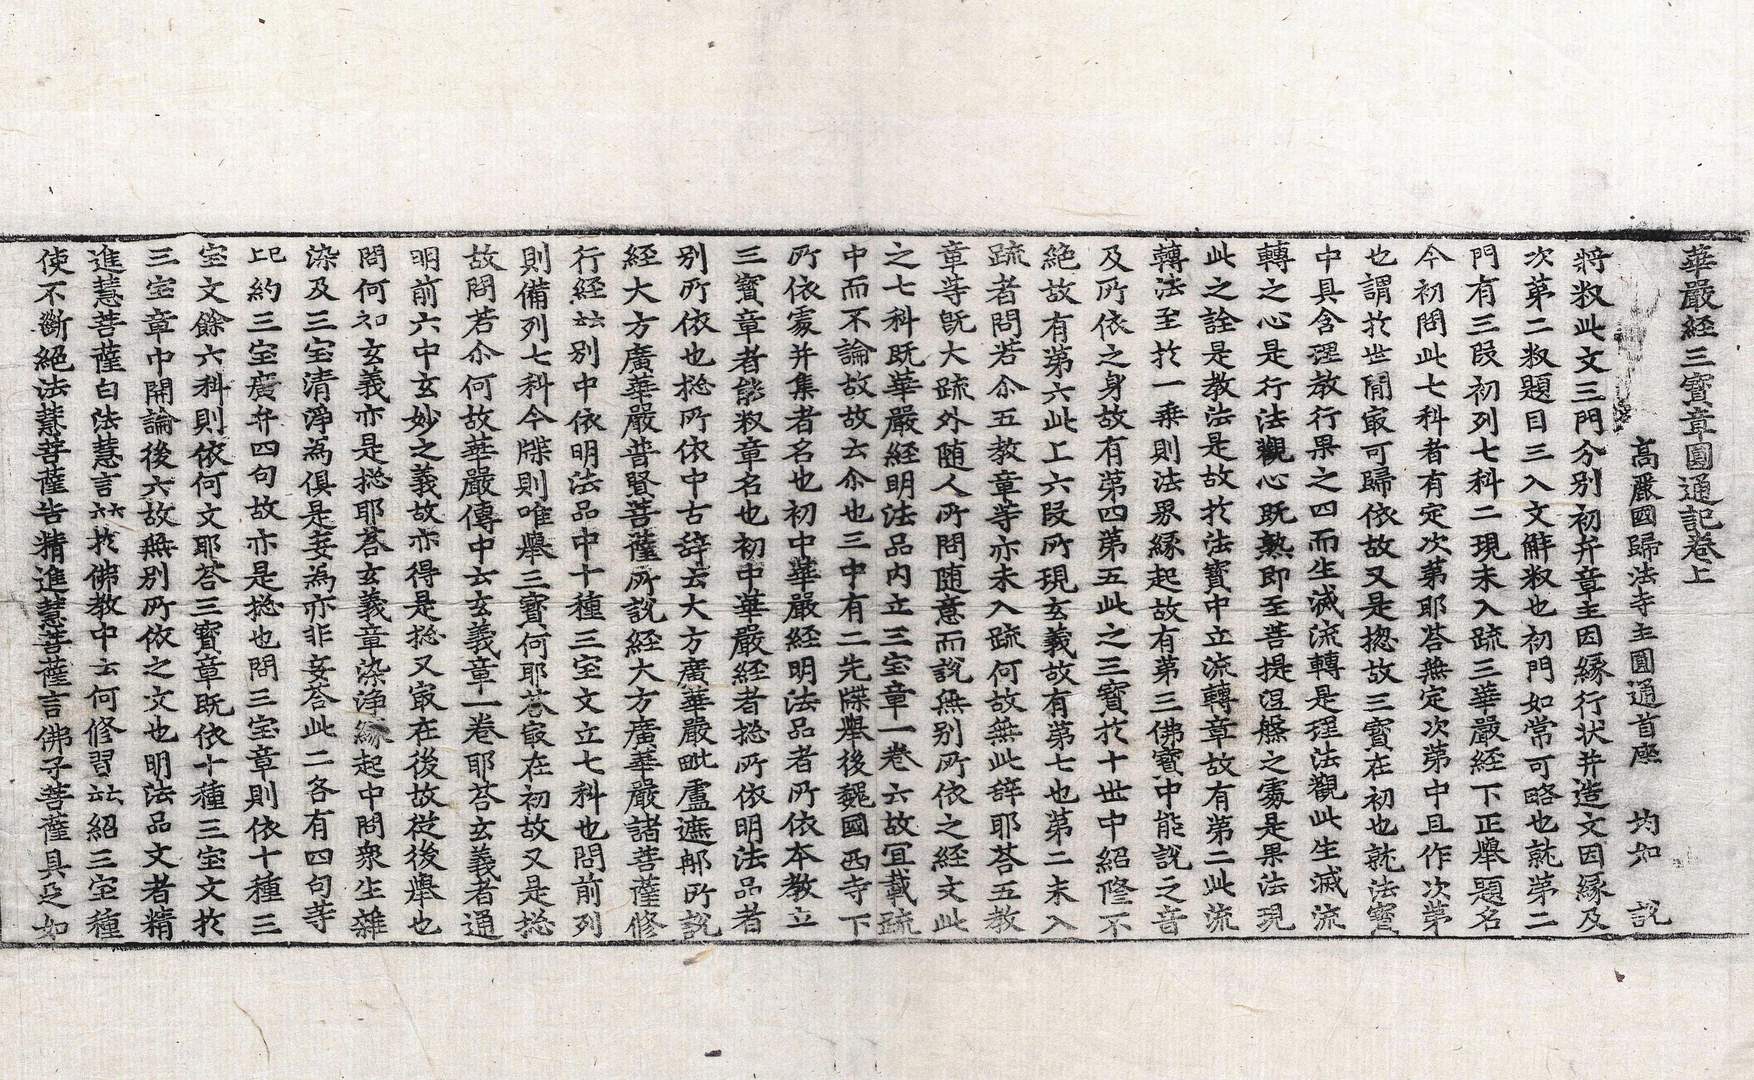 華嚴經三寶章圓通記卷上
高嚴國歸法寺主圓通首座 均如 說
將釈此文三門分別初弁章主因縁行状并造文因縁及
次苐二釈題目三入文觧釈也初門如常可略也就苐二
門有三段初列七科二現未入䟽三華嚴經下正舉題名
今初問此七科者有定次苐耶荅無定次第中且作次苐
也謂於世間㝡可歸依故又是揔故三寶在初也就法寶
中具含理教行果之四而生滅流轉是理法觀此生滅流
轉之心是行法觀心既熟即至菩提涅槃之處是果法現
此之詮是教法是故於法寶中立流轉章故有苐二此流
轉法至於一乗則法界縁起故有苐三佛寶中能說之音
及所依之身故有苐四苐五此之三寶於十世中紹隆不
絶故有苐六此上六段所現玄義故有苐七也苐二未入
䟽者問若尒五教章等亦未入䟽何故無此辞耶荅五教
章等旣大䟽外随人所問随意而說無別所依之經文此
之七科既華嚴經明法品内立三宝章一卷六故冝載䟽
中而不論故故云尒也三中有二先牒舉後魏國西寺下
所依處并集者名也初中華嚴經明法品者所依本教立
三寶章者能釈章名也初中華嚴經者揔所依明法品者
別所依也揔所依中古辞云大方廣華嚴毗盧遮那所說
經大方廣華嚴普賢菩薩所說經大方廣華嚴諸菩薩修
行經㘴別中依明法品中十種三宝文立七科也問前列
則備列七科今牒則唯舉三寶何耶荅㝡在初故又是揔
故問若尒何故華嚴傳中云玄義章一卷耶荅玄義者通
明前六中玄妙之義故亦得是揔又㝡在後故從後舉也
問何知玄義亦是揔耶荅玄義章染淨縁起中問衆生雜
染及三宝清淨為俱是妄為亦非妄荅此二各有四句等
㘴約三宝廣弁四句故亦是揔也問三宝章則依十種三
宝文餘六科則依何文耶荅三寶章既依十種三宝文於
三宝章中開論後六故無別所依之文也明法品文者精
進慧菩薩白法慧言㘴於佛教中云何修習㘴紹三宝種
使不斷絶法慧菩薩告精進慧菩薩言佛子菩薩具足如